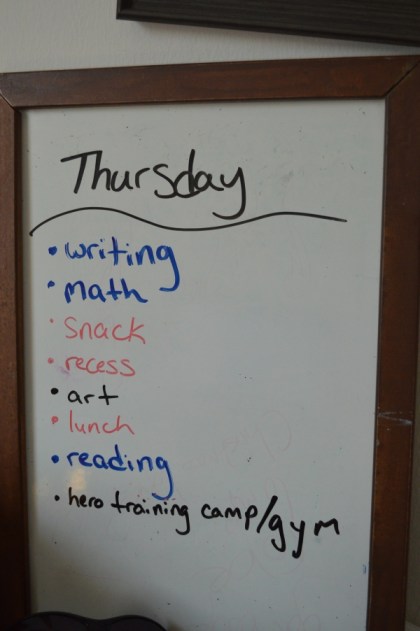 Thursday
• writing
• math
• snack
• recess
• art
• lunch
• reading
• hero training camp/gym